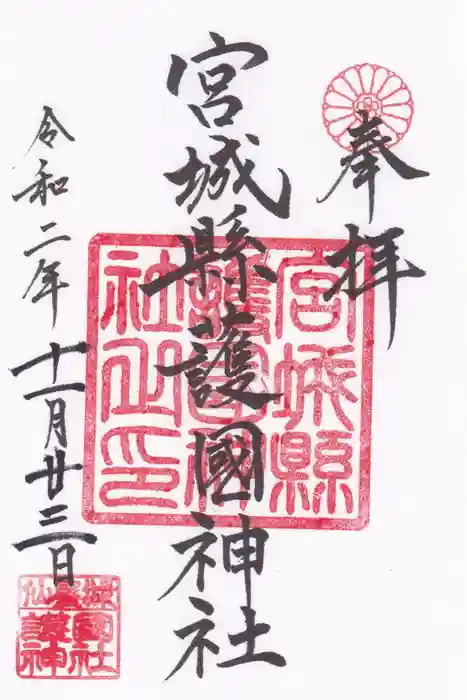 奉拝
宮城縣護國神社
宮城縣護國神社之印
令和二年十一月廿三日